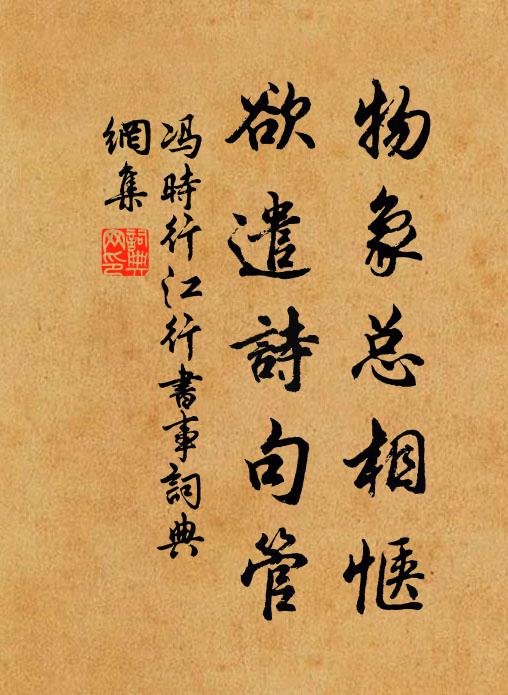 物象总相惬
欲遣詩句管
冯時行江行書事詞典
網集
詞典
网印